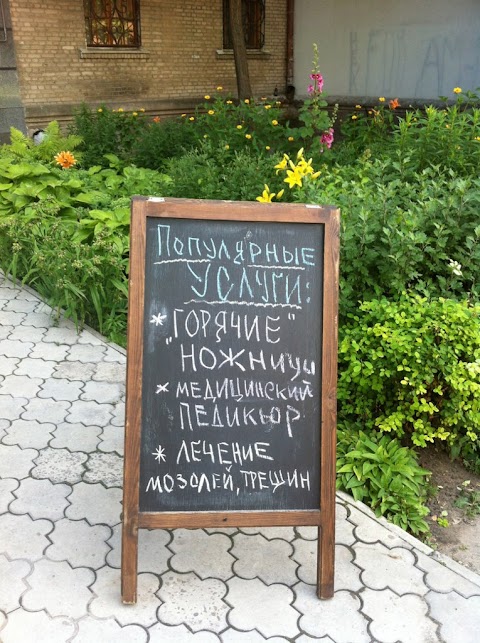 Популярные
услуги:
* "ГОРЯЧИЕ"
НОЖНИЦЫ
* МЕДИЦИНСКИЙ
ПЕДИКЮР
* ЛЕЧЕНИЕ
МОЗОЛЕЙ, ТРЕЩИН